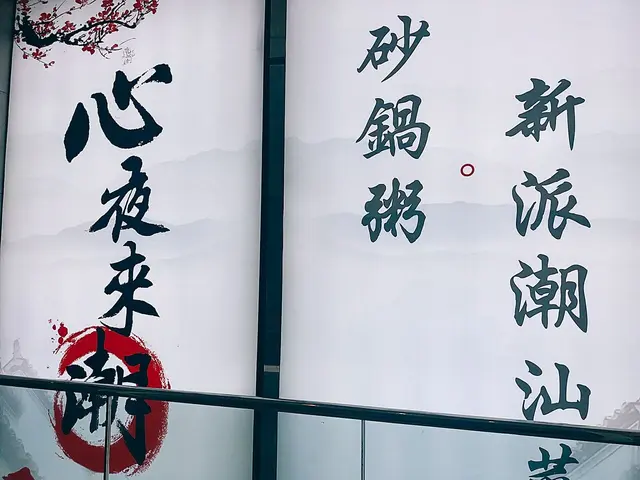 新派潮汕菜
砂鍋粥
心夜來潮